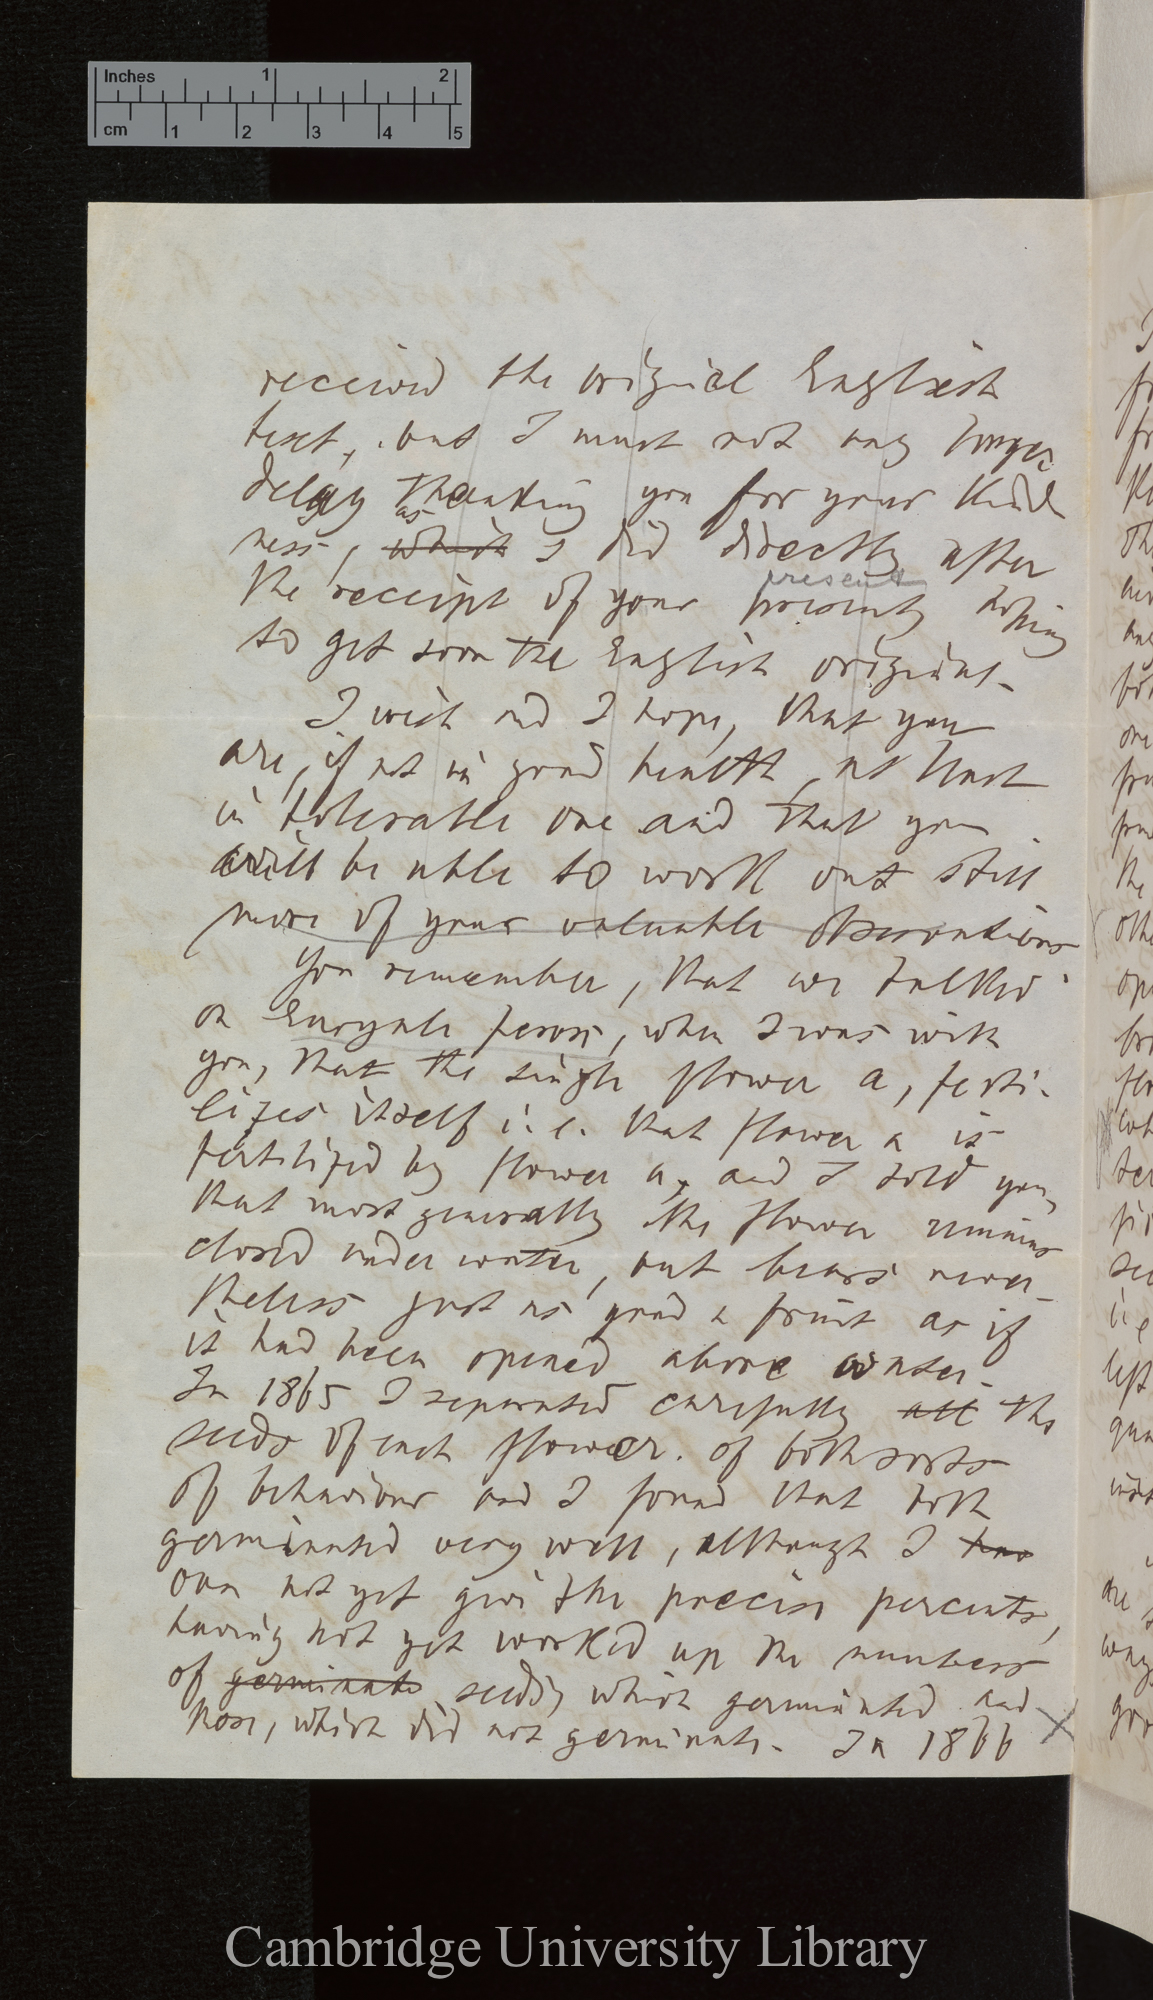 Inches 1 2
cm 1 2 3 4 5
received the original English
text, but I must not any longer
delay thanking you for your kind
as
ness, which I did directly after
present
the receipt of your present, hoping
to get soon the English original.
I wish and I hope, that you
are, if not in good health, at least
in tolerable one and that you
will be able to work out still
more of your valuable observations
You remember, that we talked
on Euryale ferox, when I was with
you, that the single flower a, ferti-
lizes itself i.e. that flower a is
fertilized by flower a, and I told you,
that most generally the flower remains
closed under water, but bears never-
theless just as good a fruit as if
it had been opened above water.
In 1865 I separated carefully all the
seeds of each flower of both sorts
of behaviour and I found that both
germinated very well, although I
can not yet give the precise percents,
having not yet worked up the numbers
of germinate seeds, which germinated and
those, which did not germinate. In 1866
Cambridge University Library